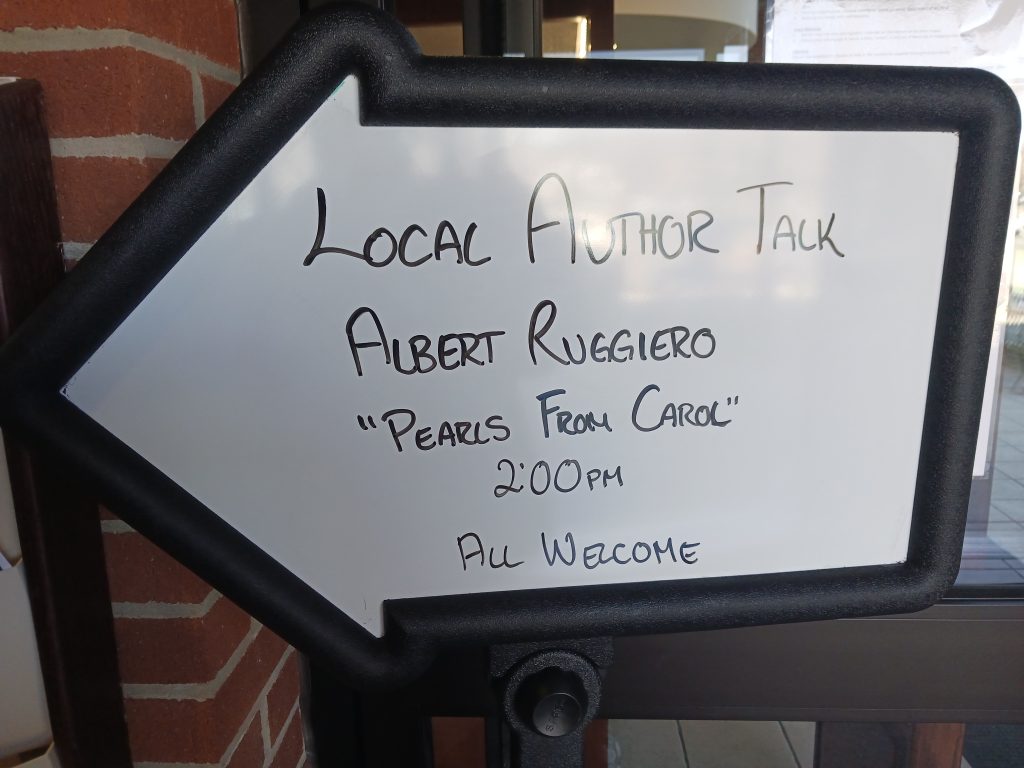 Local Author Talk
Albert Ruggiero
"Pearls From Carol"
2:00pm
All Welcome